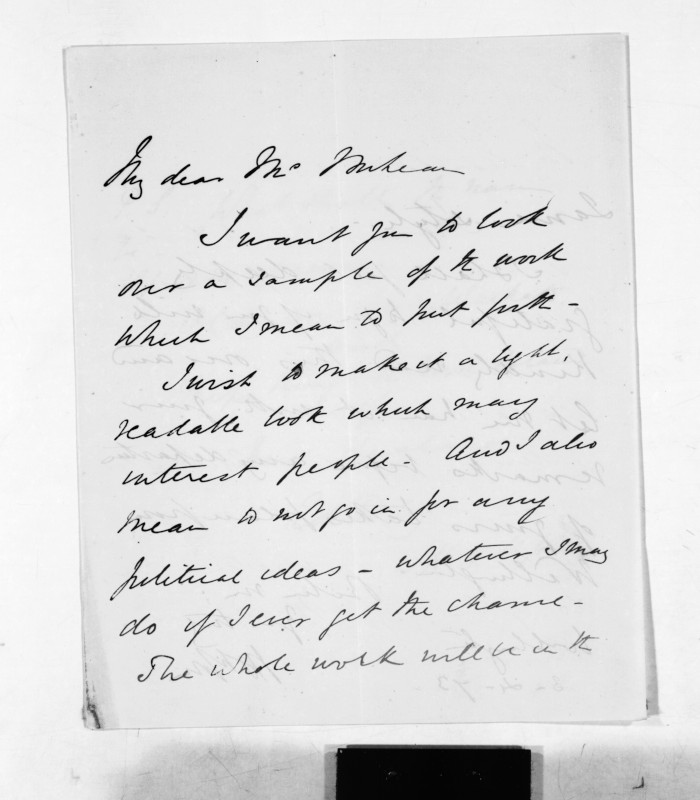 My dear Mr McLean
I want you to look
over a sample of the work
which I mean to put forth -
I wish to make it a light,
readable book which may
interest people - And I also
mean to not go in for any
political ideas - whatever I may
do if I ever get the chance -
The whole work will be in the